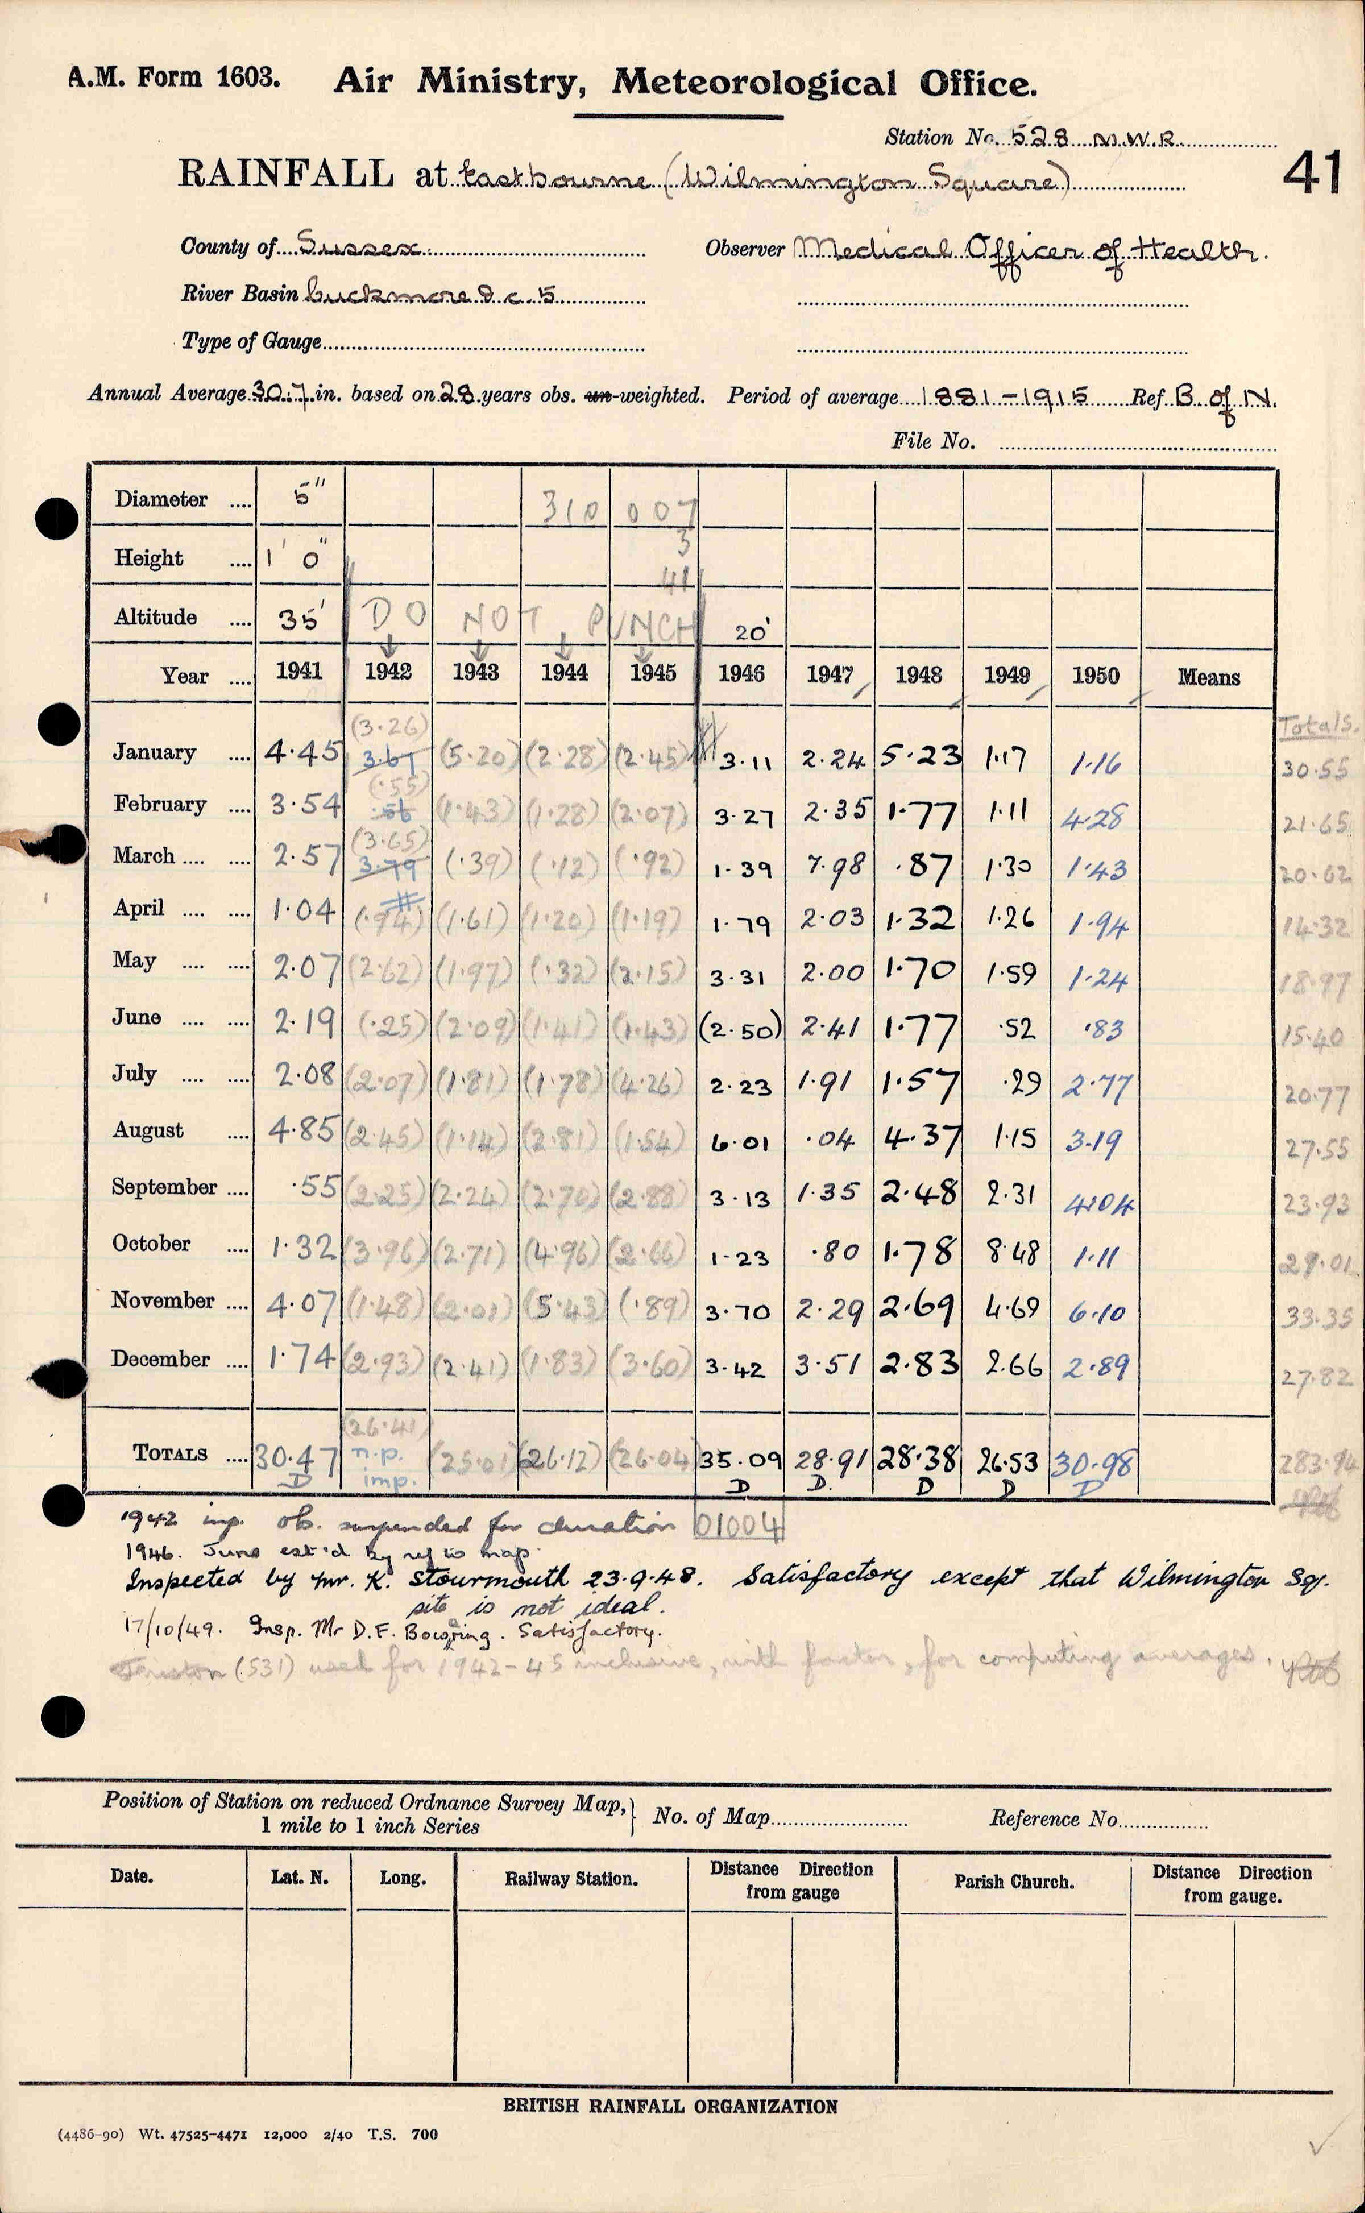 A.M. Form 1603. Air Ministry, Meteorological Office.
Station No. 528 M.W.R.
RAINFALL at Eastbourne (Wilmington Square) 41
County of Sussex Observer Medical Officer of Health.
River Basin Cuckmere &c. 5
Type of Gauge
Annual Average 30.7 in. based on 28 years obs. un-weighted. Period of average 1881-1915 Ref. B. of N.
File No.
Diameter .... 5" 310 007
3
Height .... 1' 0" 41
Altitude .... 35' DO NOT PUNCH 20'
Year .... 1941 1942 1943 1944 1945 1946 1947 1948 1949 1950 Means Totals.
January .... 4.45 (3.26) 3.61 (5.20) (2.28) (2.45) 3.11 2.24 5.23 1.17 1.16 30.55
February .... 3.54 (.55) .56 (1.43) (1.28) (2.07) 3.27 2.35 1.77 1.11 4.28 21.65
March .... .... 2.57 (3.65) 3.79 (.39) (.12) (.92) 1.39 7.98 .87 1.30 1.43 20.62
April .... .... 1.04 (.94) # (1.61) (1.20) (1.19) 1.79 2.03 1.32 1.26 1.94 14.32
May .... .... 2.07 (2.62) (1.97) (.32) (2.15) 3.31 2.00 1.70 1.59 1.24 18.97
June .... .... 2.19 (.25) (2.09) (1.41) (1.43) (2.50) 2.41 1.77 .52 .83 15.40
July .... .... 2.08 (2.07) (1.81) (1.78) (4.26) 2.23 1.91 1.57 .29 2.77 20.77
August .... 4.85 (2.45) (1.14) (2.81) (1.54) 6.01 .04 4.37 1.15 3.19 27.55
September .... .55 (2.25) (2.24) (2.70) (2.88) 3.13 1.35 2.48 2.31 4.04 23.93
October .... 1.32 (3.96) (2.71) (4.96) (2.66) 1.23 .80 1.78 8.48 1.11 29.01
November .... 4.07 (1.48) (2.01) (5.43) (.89) 3.70 2.29 2.69 4.69 6.10 33.35
December .... 1.74 (2.93) (2.41) (1.83) (3.60) 3.42 3.51 2.83 2.66 2.89 27.82
TOTALS .... 30.47 (26.41) n.p. imp. (25.01) (26.12) (26.04) 35.09 28.91 28.38 26.53 30.98 283.94
D D D D D D
1942 imp. ob. suspended for duration 01004
1946. June est'd by ref to map.
Inspected by Mr. K. Stourmouth 23.9.48. Satisfactory except that Wilmington Sq.
site is not ideal.
17/10/49. Insp. Mr D.F. Bowring. Satisfactory.
Friston (531) used for 1942-45 inclusive, with factor, for computing averages.
Position of Station on reduced Ordnance Survey Map,} No. of Map Reference No.
1 mile to 1 inch Series
Date. Lat. N. Long. Railway Station. Distance from gauge Direction Parish Church. Distance Direction from gauge.
BRITISH RAINFALL ORGANIZATION
(4486-90) Wt. 47525-4471 12,000 2/40 T.S. 700